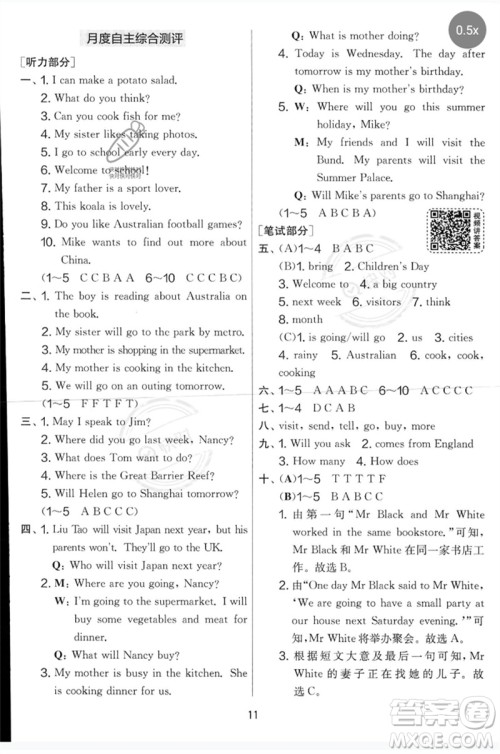 0.5x
月度自主综合测评
[听力部分]
一、1. I can make a potato salad.
2. What do you think?
3. Can you cook fish for me?
4. My sister likes taking photos.
5. I go to school early every day.
6. Welcome to school!
7. My father is a sport lover.
8. This koala is lovely.
9. Do you like Australian football games?
10. Mike wants to find more about Australia.
(1～5) CCBAA 6～10 CCACB)
二、1. The boy is reading about Australia on the book.
2. My sister will go to the park by metro.
3. My mother is shopping in the supermarket.
4. My mother is cooking in the kitchen.
5. We will go to Beijing by plane.
(1～5 FFTFT)
三、1. May I speak to Jim?
2. Where did you go last week, Nancy?
3. What does Tom want to do?
4. Where is the Great Barrier Reef?
5. Will Helen go to Shanghai tomorrow?
(1～5) ABCCA)
四、1. Liu Tao will visit Japan next year, but his parents won't. They'll go to the UK.
Q: Who will visit Japan next year?
2. M: Where are you going, Nancy?
W: I'm going to the supermarket. I'll buy some vegetables and meat for dinner.
Q: What will Nancy buy?
3. My mother is busy in the kitchen. She is cooking dinner for us.
Q: What is my mother doing?
4. Today is Wednesday. The day after tomorrow is my mother's birthday.
Q: When is my mother's birthday?
5. W: Where will you go this summer holiday, Mike?
M: My friends and I will visit the Bund. My parents will visit the Summer Palace.
Q: Will Mike's parents go to Shanghai?
(1～5) ABCBA)
视频讲答案
[笔试部分]
五、(A)1～4 ABBC
(B)1. foods 2. Children's Day
3. Welcome to 4. a big country
5. next week 6. visitors 7. think
8. month
(C)1. is going to 2. us 3. cities
4. rainy 5. Australian 6. cook, cooking
六、1～5 AAABC 6～10 CACBC
七、1～4 DCAB
八、visit, send, tell, go, buy
九、1. How, about 2. comes from England
3. How many 4. cook food
十、(A)1～5 TTTTF
(B)1～3 BAC
1. 由第一句“Mr Black and Mr White worked in the same bookstore.”可知, Mr Black 和 Mr White 在同一家书店工作。故选 B。
2. 由“One day Mr Black said to Mr White, 'We are going to have a small party at our house next Saturday evening.'”可知, Mr White 将举办聚会。故选 A。
3. 根据短文大意及问句可知, Mr White 的妻子正在找她的儿子。故选 C。
11
答案圈
MXQE.COM